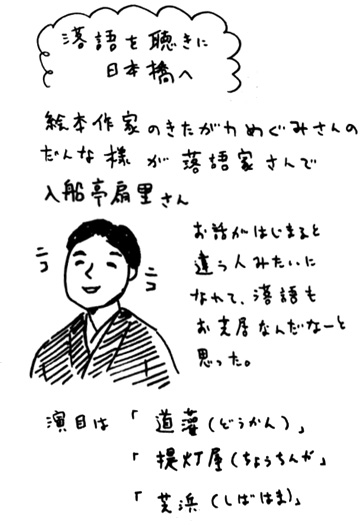 落語を聴きに
日本橋へ
絵本作家のきたがわめぐみさんの
だんな様が落語家さんで
入船亭扇里さん
ニコ
ニコ
お話がはじまると
違う人みたいに
なれて、落語も
お芝居なんだなーと
思った。
演目は「道灌(どうかん)」
「提灯屋(ちょうちんや」
「芝浜(しばはま)」